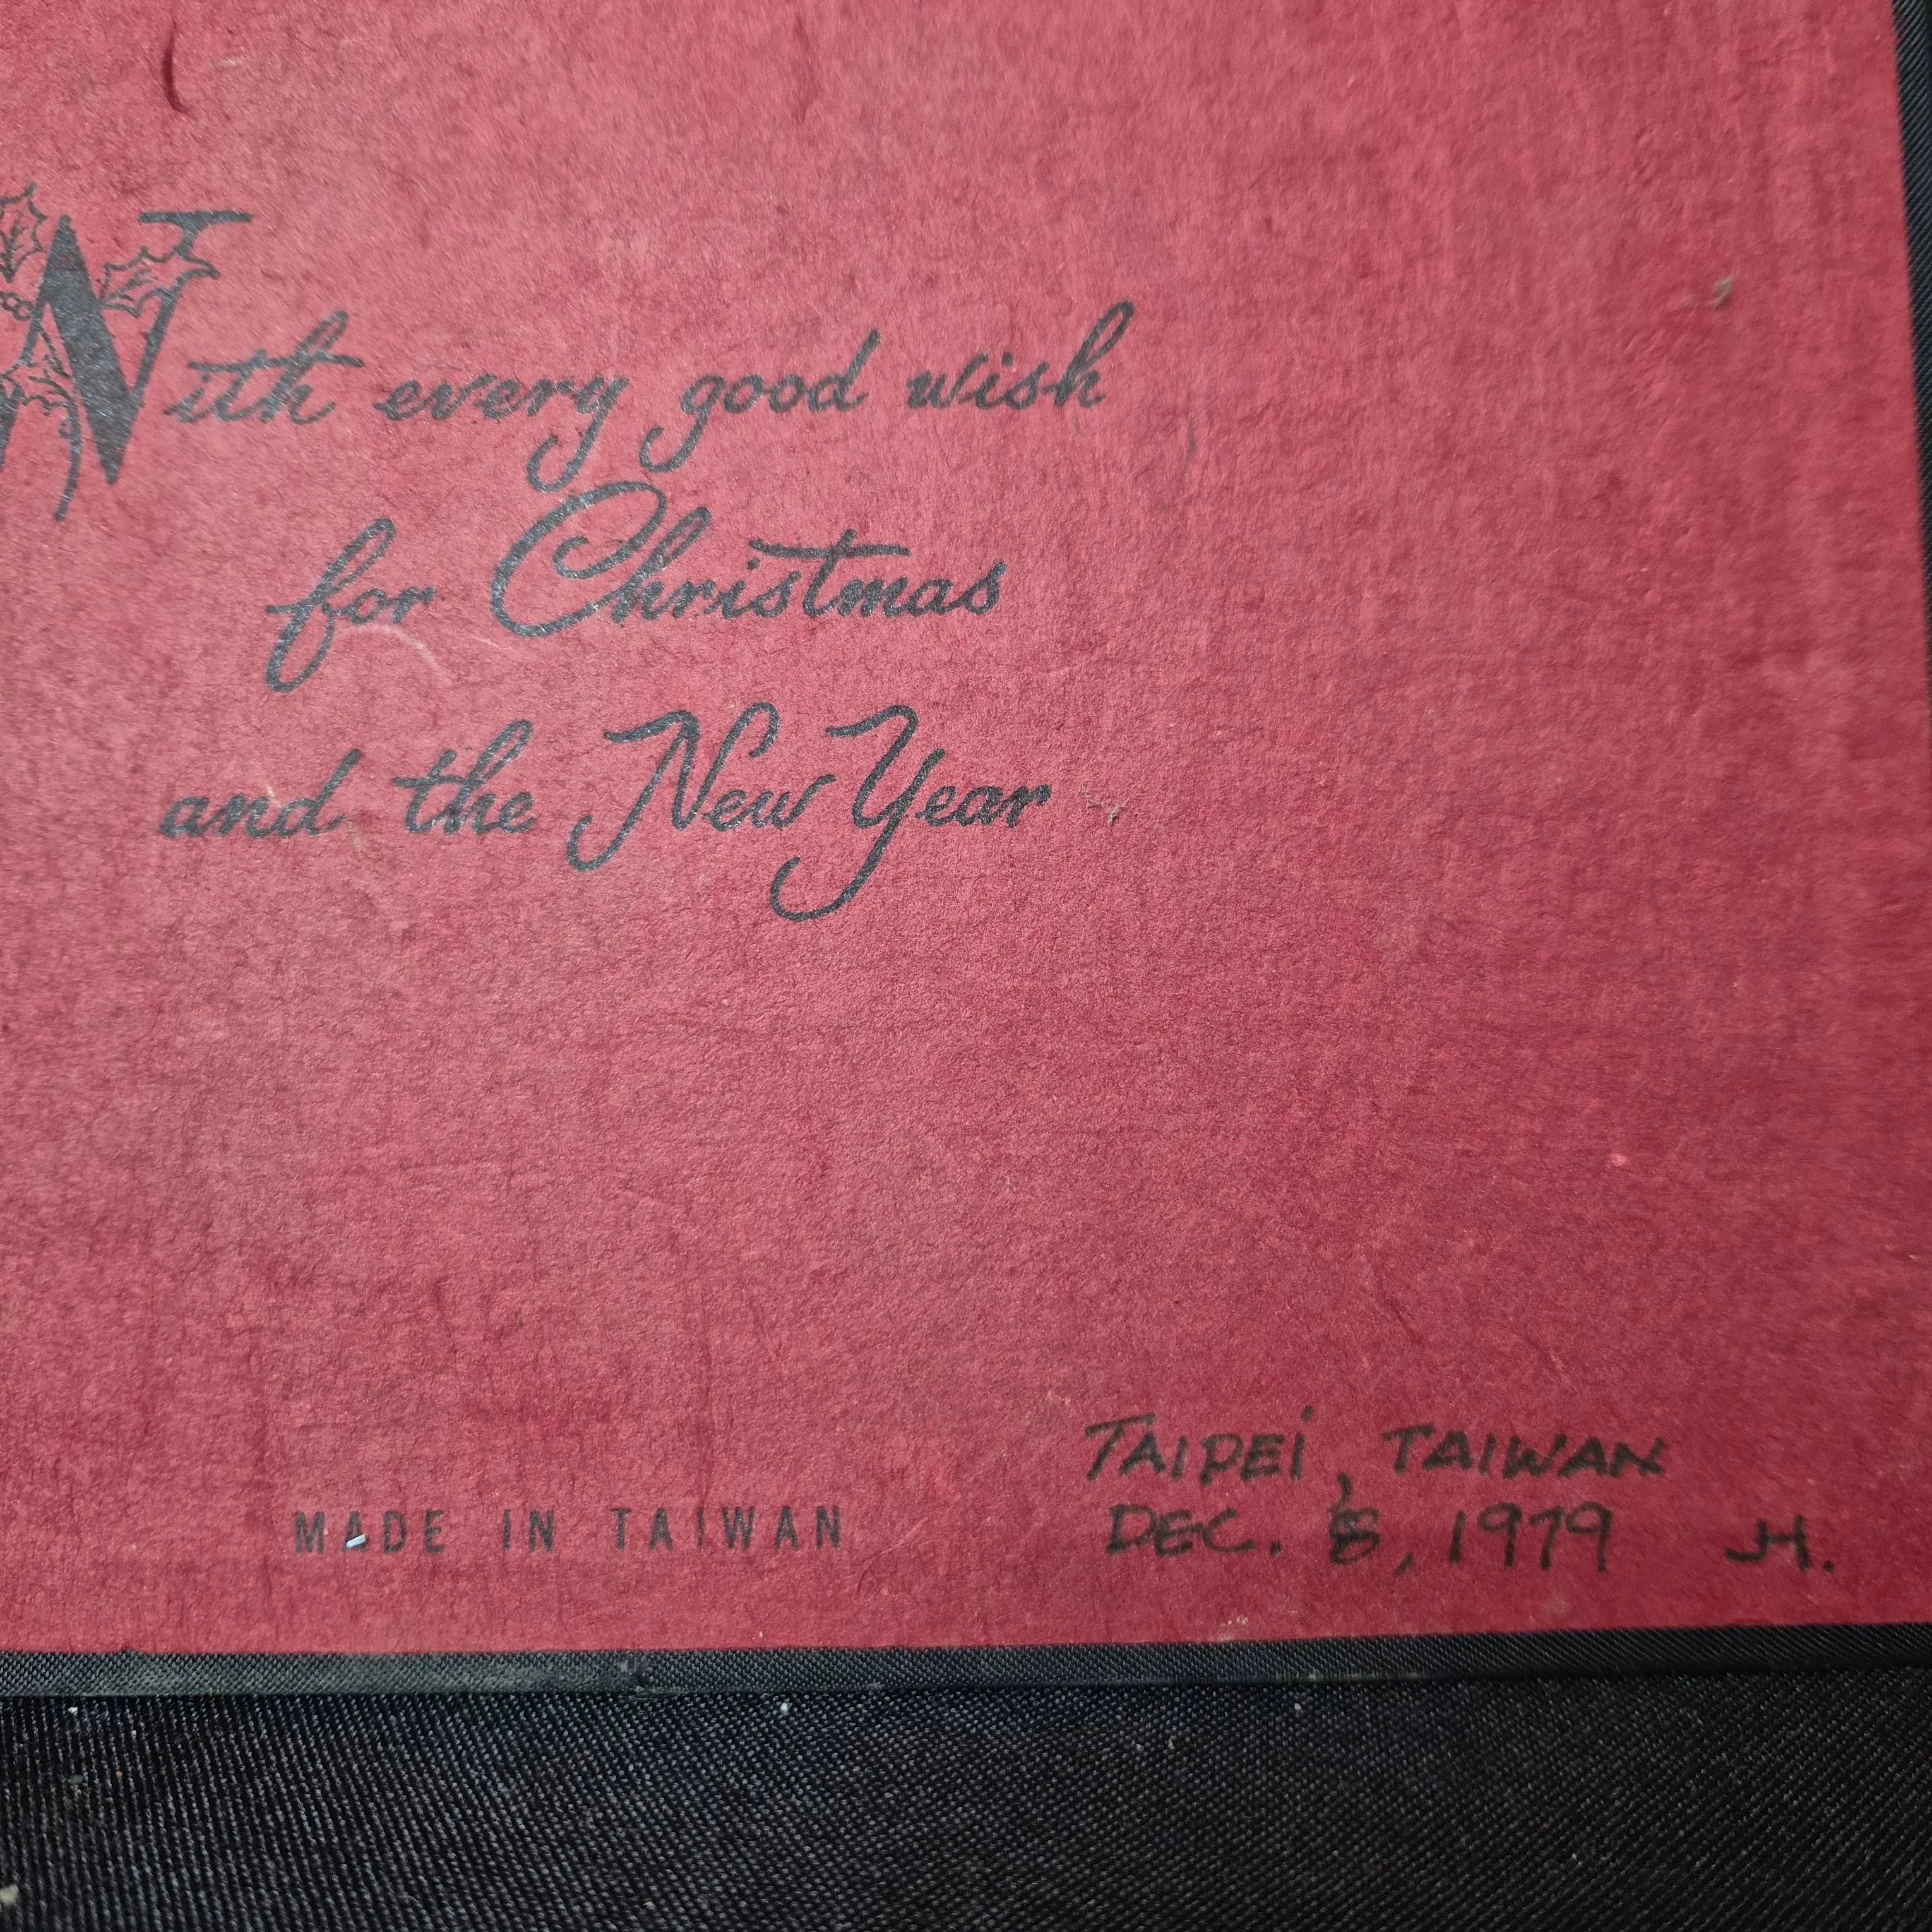 With every good wish
for Christmas
and the New Year
MADE IN TAIWAN
TAIPEI, TAIWAN
DEC. 8, 1979 JH.